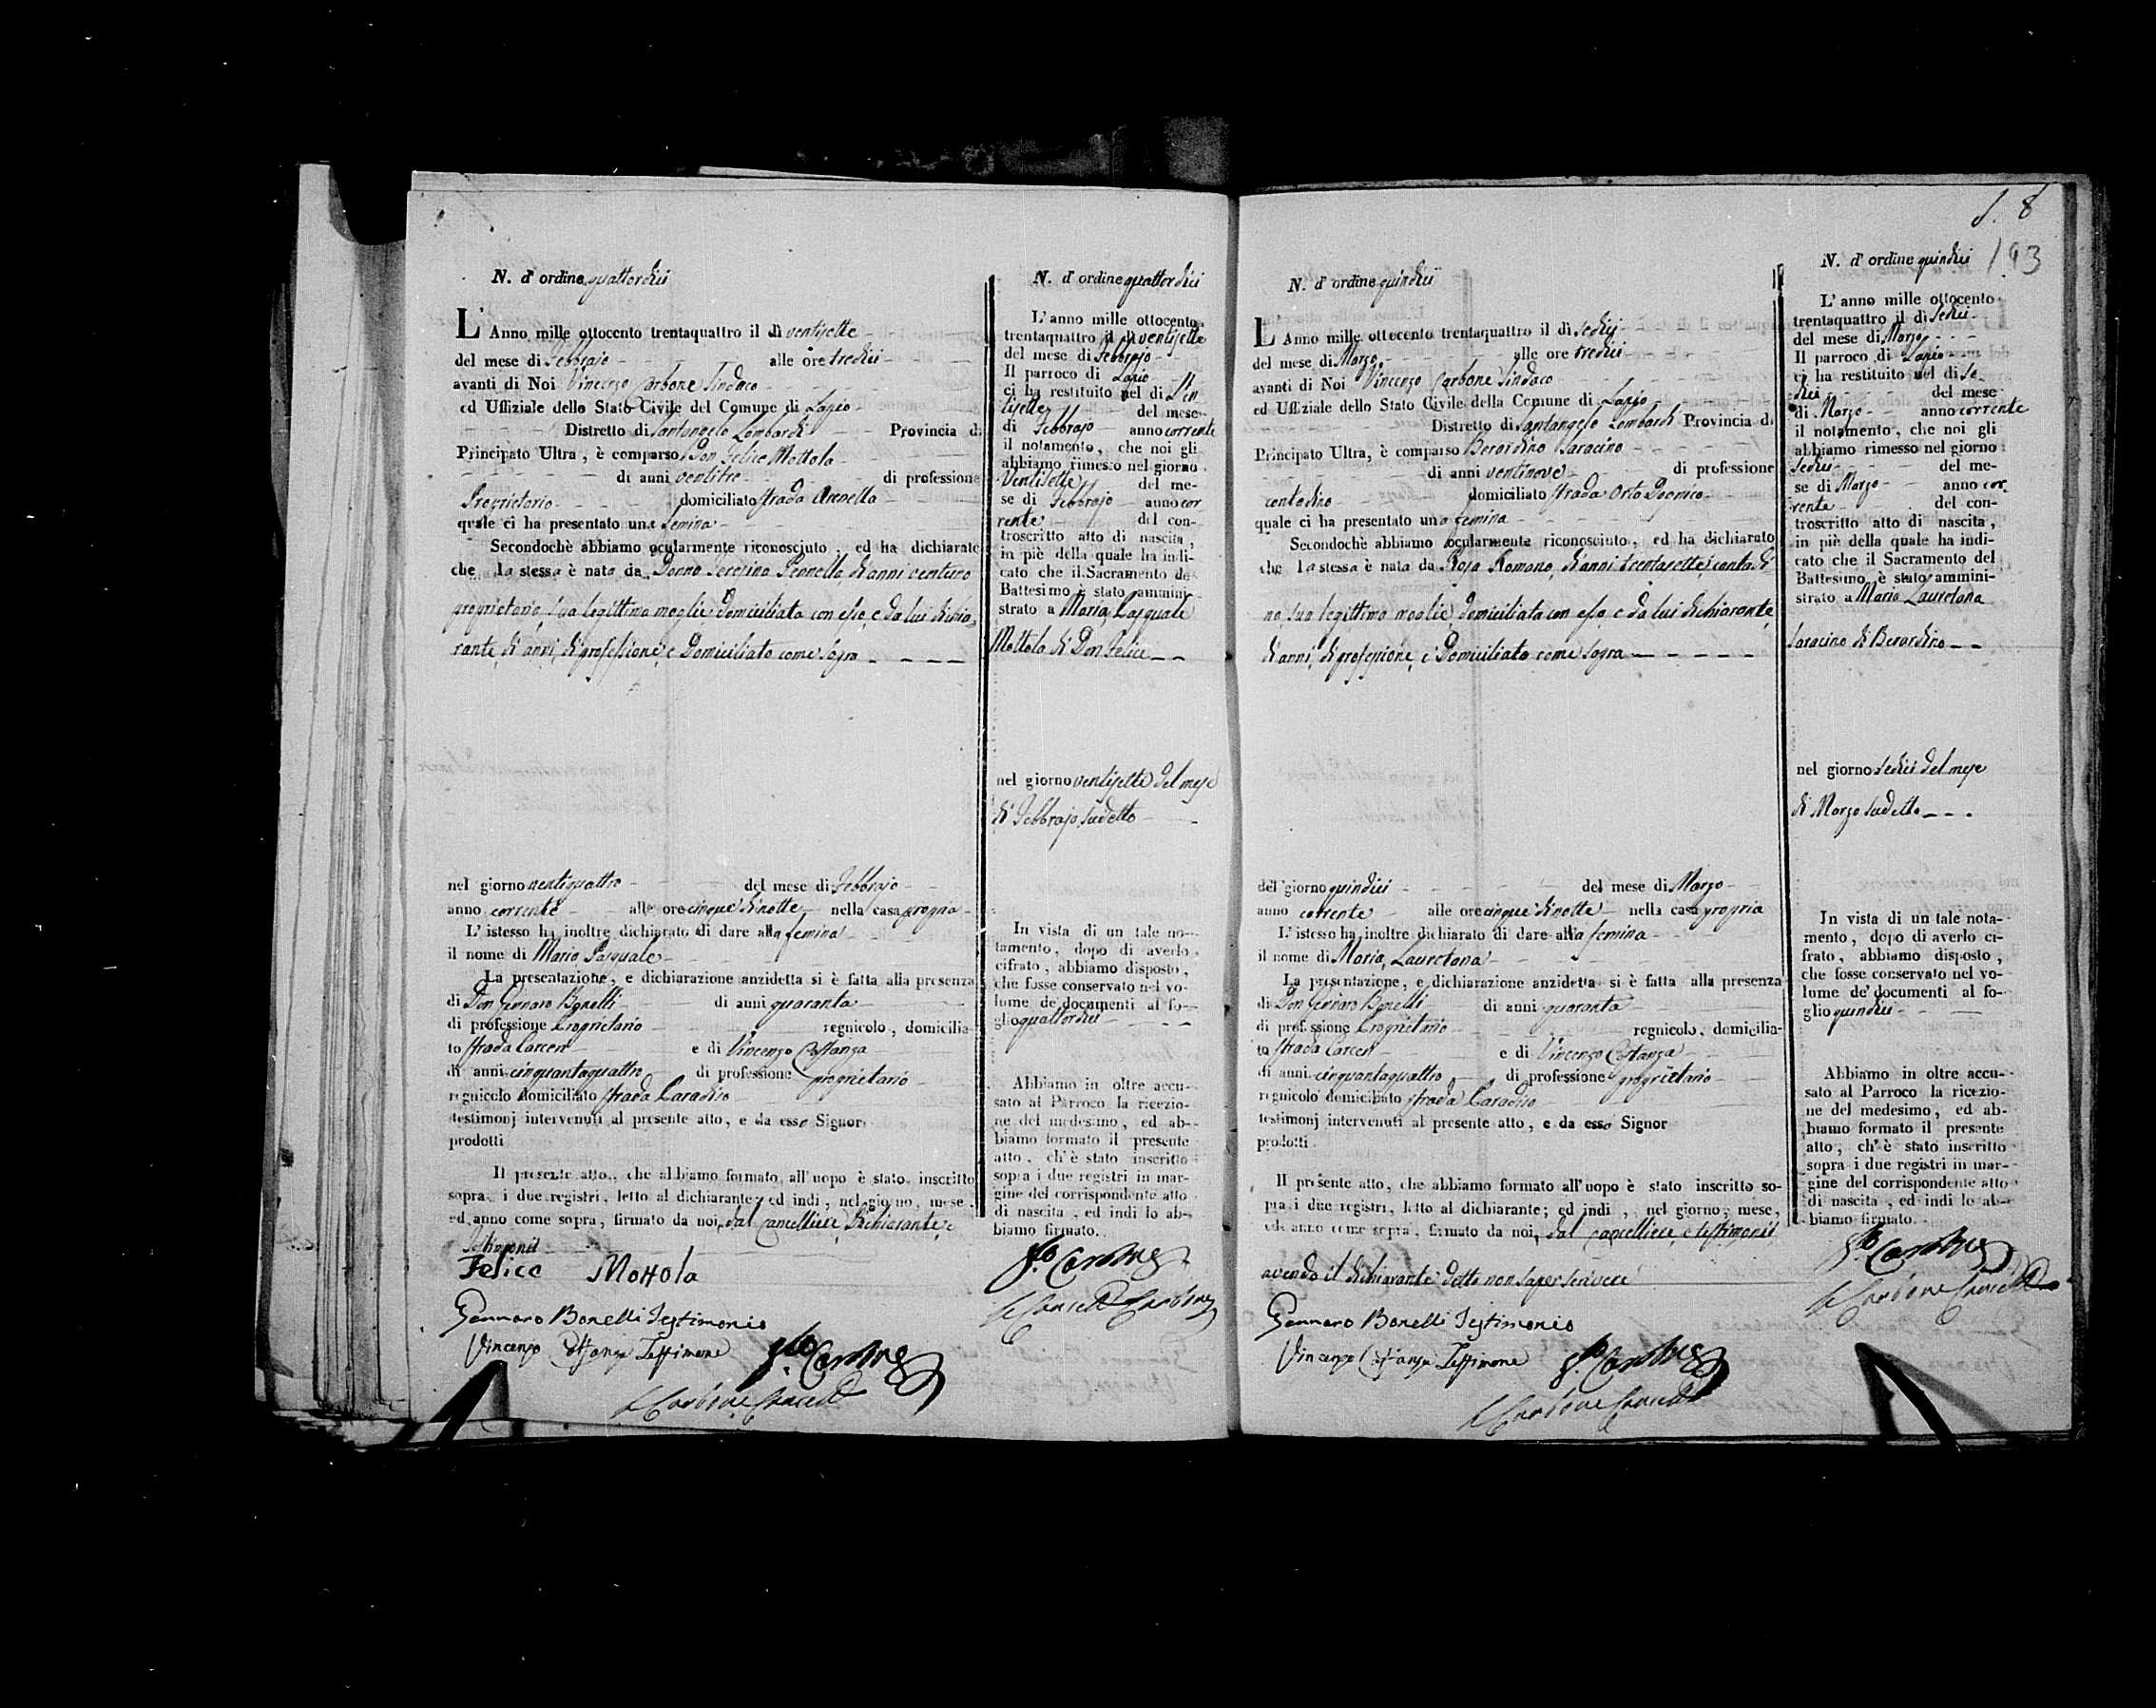 N. d' ordine quattordici
L' Anno mille ottocento trentaquattro il dì ventisette
del mese di Febbrajo alle ore tredici
avanti di Noi Vincenzo Carbone Sindaco
ed Uffiziale dello Stato Civile del Comune di Lapio
Distretto di Santangelo Lombardi Provincia di
Principato Ultra, è comparso Don Felice Mottola
di anni ventitre di professione
Proprietario domiciliato Strada Arenella
quale ci ha presentato una femina
Secondochè abbiamo ocularmente riconosciuto, ed ha dichiarato
che la stessa è nata da Donna Teresina Pennella di anni ventuno
proprietaria, sua legittima moglie domiciliata con esso, e da lui dichia
rante, di anni, di professione, e Domiciliato come sopra
nel giorno ventiquattro del mese di Febbrajo
anno corrente alle ore cinque di notte nella casa propria
L' istesso ha inoltre dichiarato di dare alla femina
il nome di Maria Pasquale
La presentazione, e dichiarazione anzidetta si è fatta alla presenza
di Don Gennaro Bonelli di anni quaranta
di professione Proprietario regnicolo, domicilia-
to Strada Carceri e di Vincenzo Costanza
di anni cinquantaquattro di professione proprietario
regnicolo domiciliato Strada Paradiso
testimonj intervenuti al presente atto, e da esso Signor
prodotti
Il presente atto, che abbiamo formato all'uopo è stato inscritto
sopra i due registri, letto al dichiarante, ed indi, nel giorno, mese,
ed anno come sopra, firmato da noi, dal Cancelliere, dichiarante, e
testimonii
Felice Mottola
Gennaro Bonelli Testimonio
Vincenzo Costanza Testimone
Carbone
Carbone
N. d' ordine quattordici
L' anno mille ottocento
trentaquattro il dì ventisette
del mese di Febbrajo
Il parroco di Lapio
ci ha restituito nel di Ven
tisette del mese
di Febbrajo anno corrente
il notamento, che noi gli
abbiamo rimesso nel giorno
Ventisette del me-
se di Febbrajo anno cor
rente del con-
troscritto atto di nascita,
in piè della quale ha indi-
cato che il Sacramento de
Battesimo è stato ammini-
strato a Maria Pasquale
Mottola di Don Felice
nel giorno ventisette del mese
di Febbrajo sudetto
In vista di un tale no-
tamento, dopo di averlo
cifrato, abbiamo disposto,
che fosse conservato nel vo-
lume de' documenti al fo-
glio quattordici
Abbiamo in oltre accu-
sato al Parroco la ricezio-
ne del medesimo, ed ab-
biamo formato il presente
atto, ch'è stato inscritto
sopra i due registri in mar-
gine del corrispondente atto
di nascita, ed indi lo ab-
biamo firmato.
Carbone
Carbone
8
193
N. d' ordine quindici
L' Anno mille ottocento trentaquattro il dì sedici
del mese di Marzo alle ore tredici
avanti di Noi Vincenzo Carbone Sindaco
ed Uffiziale dello Stato Civile della Comune di Lapio
Distretto di Santangelo Lombardi Provincia di
Principato Ultra, è comparso Berardino Saracino
di anni ventinove di professione
contadino domiciliato Strada Orto
quale ci ha presentato una femina
Secondochè abbiamo ocularmente riconosciuto, ed ha dichiarato
che la stessa è nata da Rosa Romano, di anni trentasette, contadi
na, sua legittima moglie domiciliata con esso, e da lui dichiarante,
di anni, di professione, e Domiciliato come sopra
del giorno quindici del mese di Marzo
anno corrente alle ore cinque di notte nella casa propria
L' istesso ha inoltre dichiarato di dare alla femina
il nome di Maria Lauretana
La presentazione, e dichiarazione anzidetta si è fatta alla presenza
di Don Gennaro Bonelli di anni quaranta
di professione Proprietario regnicolo, domicilia-
to Strada Carceri e di Vincenzo Costanza
di anni cinquantaquattro di professione proprietario
regnicolo domiciliato Strada Paradiso
testimonj intervenuti al presente atto, e da esso Signor
prodotti
Il presente atto, che abbiamo formato all'uopo è stato inscritto so-
pra i due registri, letto al dichiarante; ed indi, nel giorno, mese,
ed anno come sopra, firmato da noi, dal Cancelliere, e testimonii
avendo il dichiarante detto non saper scrivere
Gennaro Bonelli Testimonio
Vincenzo Costanza Testimone
Carbone
Carbone
N. d' ordine quindici
L' anno mille ottocento
trentaquattro il dì sedici
del mese di Marzo
Il parroco di Lapio
ci ha restituito nel di Se
dici del mese
di Marzo anno corrente
il notamento, che noi gli
abbiamo rimesso nel giorno
Sedici del me-
se di Marzo anno cor
rente del con-
troscritto atto di nascita,
in piè della quale ha indi-
cato che il Sacramento del
Battesimo è stato ammini-
strato a Maria Lauretana
Saracino di Berardino
nel giorno sedici del mese
di Marzo sudetto
In vista di un tale nota-
mento, dopo di averlo ci-
frato, abbiamo disposto,
che fosse conservato nel vo-
lume de' documenti al fo-
glio quindici
Abbiamo in oltre accu-
sato al Parroco la ricezio-
ne del medesimo, ed ab-
biamo formato il presente
atto, ch'è stato inscritto
sopra i due registri in mar-
gine del corrispondente atto
di nascita, ed indi lo ab-
biamo firmato.
Carbone
Carbone